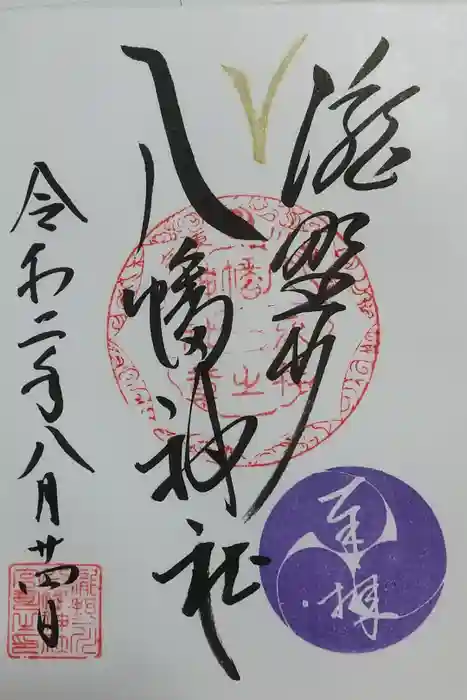 瀧野川
八幡神社
奉拝
令和二年八月廿四日